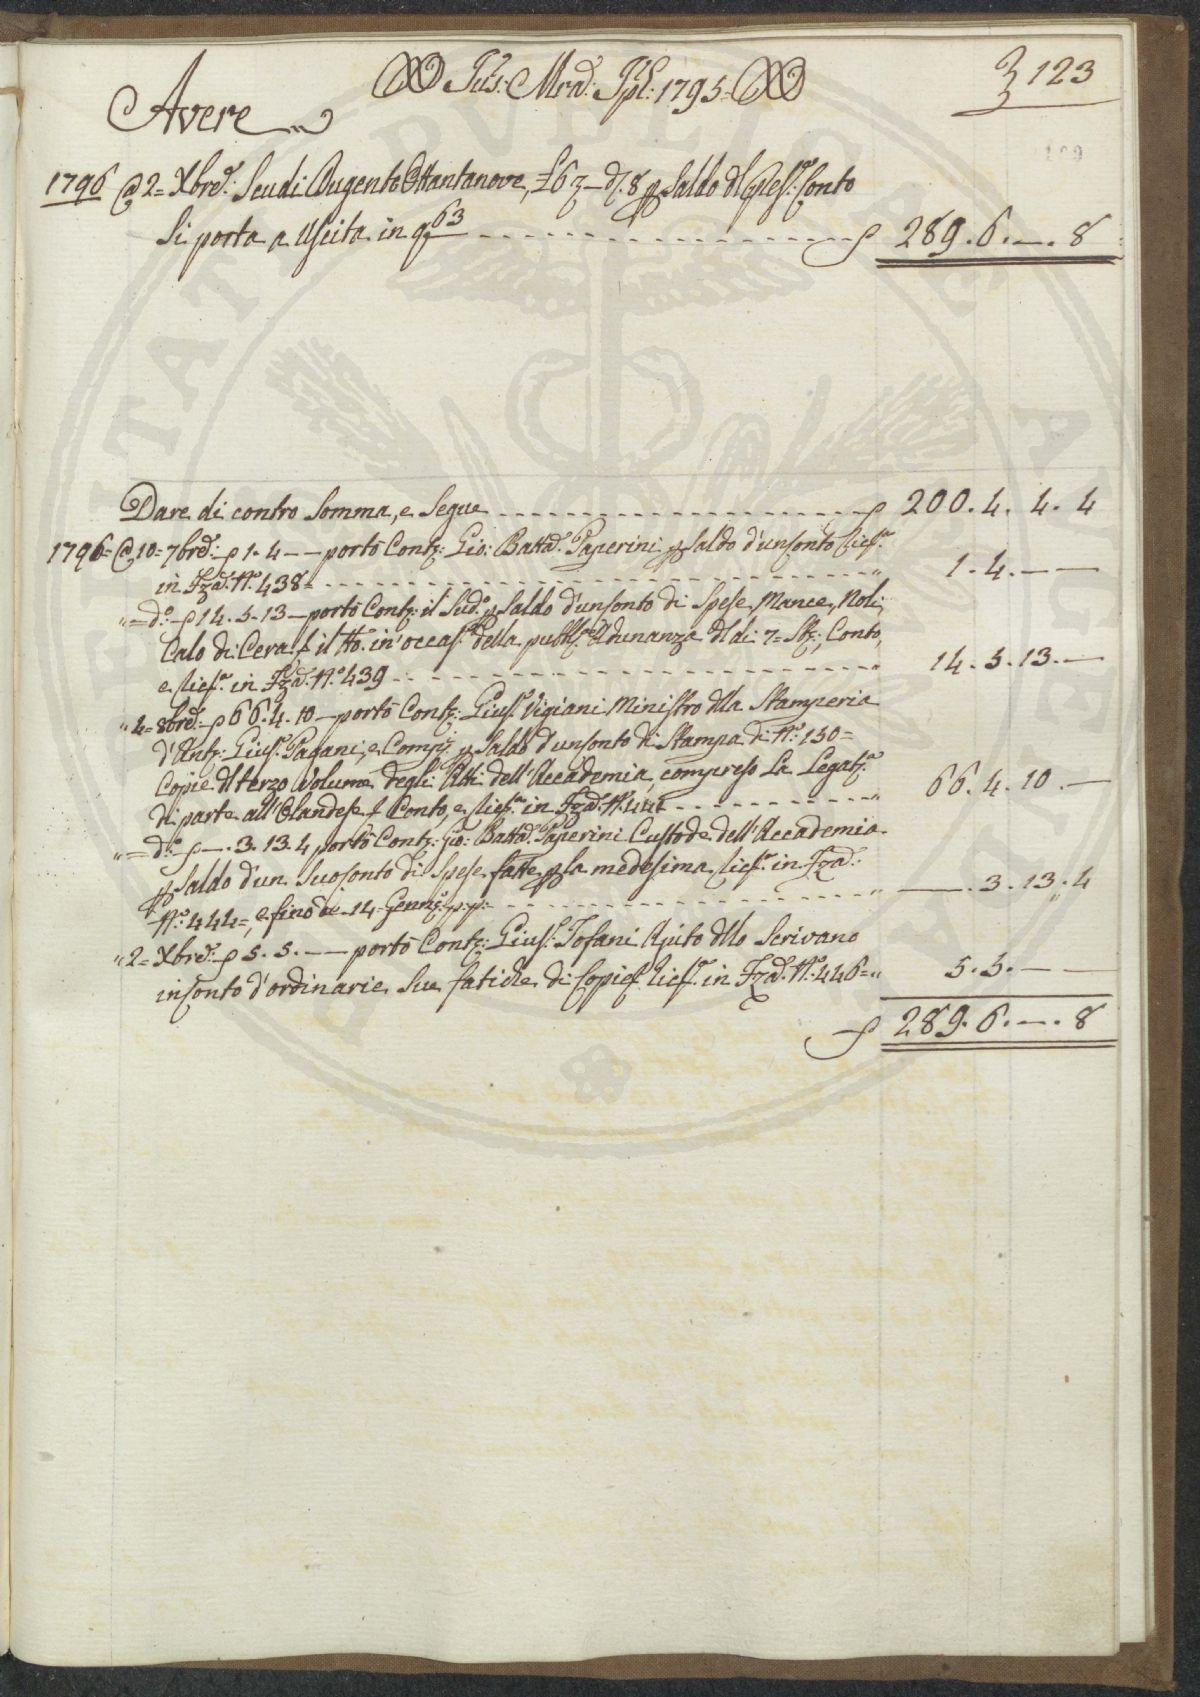 Jus: Mrd: Spl: 1795
123
Avere
1796 @ 2= Xbre: Scudi Dugento Ottantanove, £6 3 — d. 8 p Saldo dl pres: Conto
Si porta a Uscita in q 63 - - - - 289. 6. —. 8
Dare di contro Somma, e Segue - - - - 200. 4. 4. 4
1796= @ 10= 7bre: 1. 4 — — portò Contj: Gio: Battã: Paperini p Saldo d'un Conto Ricf:a
in Fza: N.o 438= - - - - 1. 4. — —
"= d.o 14. 5. 13 — portò Contj: il Sud.o p Saldo d'un Conto di Spese Mance, Noli,
Calo di Cera f il tto. in occas.e della pubbl:a Adunanza dl di 7= Conto,
e Ricf:a in Fza: N.o 439 - - - - 14. 5. 13. —
" 4= 8bre: 66. 4. 10 — portò Contj: Gius: Vigiani Ministro dlla Stamperia
d'Ant:o Gius: Pagani, e Comp: p Saldo d'un Conto di Stampa di N.o 150=
Copie dl terzo Volume degli Atti dell'Accademia, compreso La Legat:a
di parte all'Olandese f Conto, e Ricf:a in Fza: N.o 441 - - - - 66. 4. 10. —
"= d.o —. 3. 13. 4 portò Contj: Gio: Battã: Paperini Custode dell'Accademia
p Saldo d'un Suo Conto di Spese fatte p la medesima Ricf:a in Fza:
N.o 444=, e fino de 14= Genn:o p:p:= - - - - —. 3. 13. 4
" 2= Xbre: 5. 5. — — portò Contj: Gius: Tofani Ajuto dllo Scrivano
in Conto d'ordinarie Sue fatiche di Copie f Ricf:a in Fza: N.o 446= 5. 5. — —
289. 6. —. 8